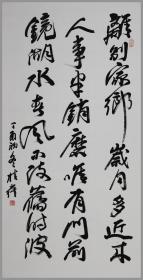 離別家鄉歲月多近來
人事半銷磨唯有門前
鏡湖水春風不改舊時波
丁酉初冬